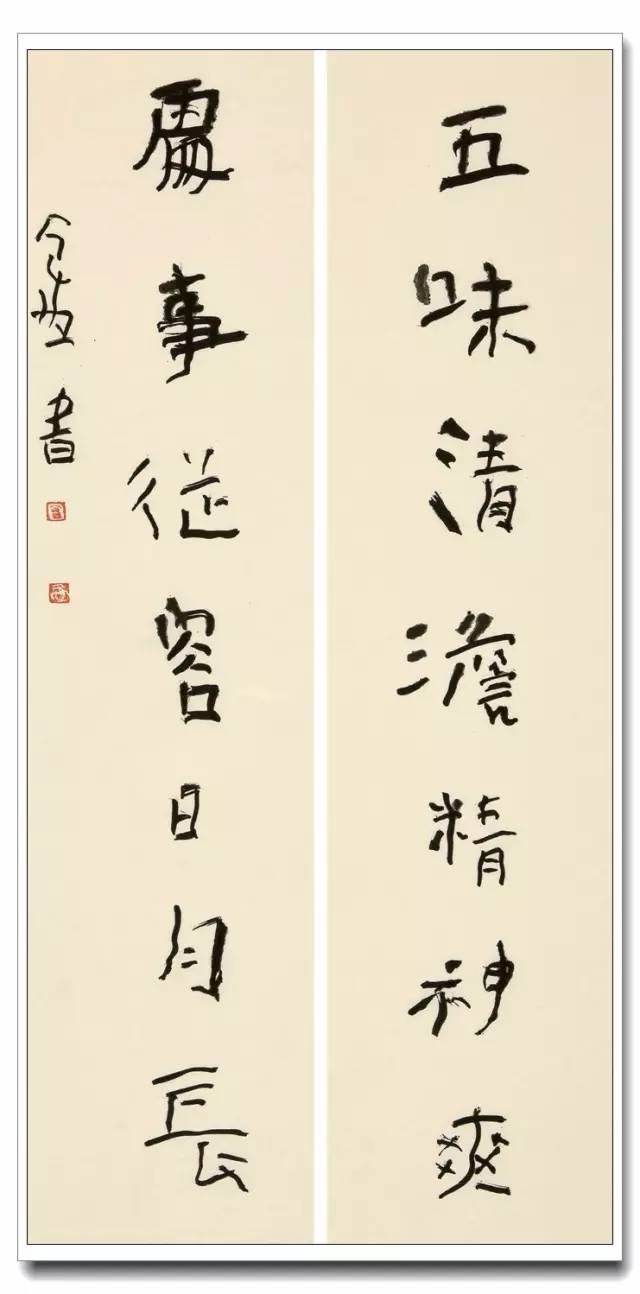 五味清澹精神爽
處事從容日月長
書